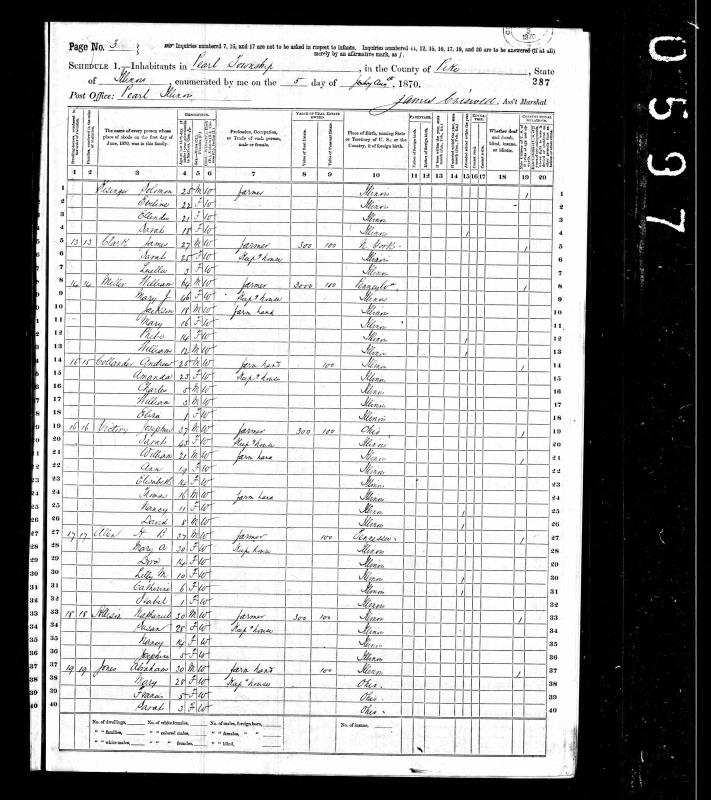 Page No. 3
Inquiries numbered 7, 16, and 17 are not to be asked in respect to infants. Inquiries numbered 11, 12, 15, 16, 17, 19, and 20 are to be answered (if at all) merely by an affirmative mark, as /.
SCHEDULE 1.—Inhabitants in Pearl Township, in the County of Pike, State
of Illinois, enumerated by me on the 5 day of Aug, 1870. 287
Post Office: Pearl Illinois
James Griswold, Ass't Marshal.
0597
DESCRIPTION. VALUE OF REAL ESTATE OWNED. PARENTAGE. EDUCATION. CONSTITUTIONAL RELATIONS.
The name of every person whose place of abode on the first day of June, 1870, was in this family.
Profession, Occupation, or Trade of each person, male or female.
Value of Real Estate.
Value of Personal Estate.
Place of Birth, naming State or Territory of U. S.; or the Country, if of foreign birth.
Father of foreign birth.
Mother of foreign birth.
Whether deaf and dumb, blind, insane, or idiotic.
1 2 3 4 5 6 7 8 9 10 11 12 13 14 15 16 17 18 19 20
1 Solomon 25 M W farmer Illinois 1 1
2 Eveline 22 F W Illinois 2
3 21 F W Illinois 3
4 Sarah 18 F W Illinois 1 4
5 13 13 Clark James 27 M W farmer 300 100 N York 1 5
6 Sarah 25 F W Keep'g house Illinois 6
7 Luella 3 F W Illinois 7
8 14 14 Miller William 64 M W farmer 3000 100 1 8
9 Mary J 46 F W Keep'g house Illinois 9
10 Jackson 18 M W farm hand Illinois 10
11 Mary 16 F W Illinois 11
12 Phebe 14 F W Illinois 1 12
13 William 12 M W Illinois 1 13
14 15 15 Collander Andrew 25 M W farm hand 100 Illinois 1 14
15 Amanda 23 F W Keep'g house Illinois 15
16 Charles 5 M W Illinois 16
17 William 3 M W Illinois 17
18 Eliza 1 F W Illinois 18
19 16 16 Victory Josephus 37 M W farmer 300 100 Ohio 1 19
20 Sarah 43 F W Keep'g house Illinois 20
21 William 21 M W farm hand Illinois 1 21
22 Ann 19 F W Illinois 22
23 Elizabeth 14 F W Illinois 23
24 16 M W farm hand Illinois 24
25 Nancy 11 F W Illinois 1 25
26 David 8 M W Illinois 1 26
27 17 17 Allen H B 37 M W farmer 100 Tennessee 1 27
28 Mary A 30 F W Keep'g house Illinois 28
29 14 F W Illinois 29
30 Lilly M 10 F W Illinois 1 30
31 Catherine 6 F W Illinois 1 31
32 Isabel 1 F W Illinois 32
33 18 18 Allison Nathaniel 30 M W farmer 300 100 Illinois 1 33
34 Susan 28 F W Keep'g house Illinois 34
35 Nancy 14 F W Illinois 35
36 Josephine 5 F W Illinois 36
37 19 19 Jones Abraham 30 M W farm hand 100 Illinois 1 37
38 Mary 28 F W Keep'g house Ohio 38
39 Francis 5 F W Ohio 39
40 Sarah 3 F W Ohio 40
No. of dwellings, No. of white females, No. of males, foreign born, No. of insane,
" " families, " " colored males, " " females, " "
" " white males, " " " females, " " blind,